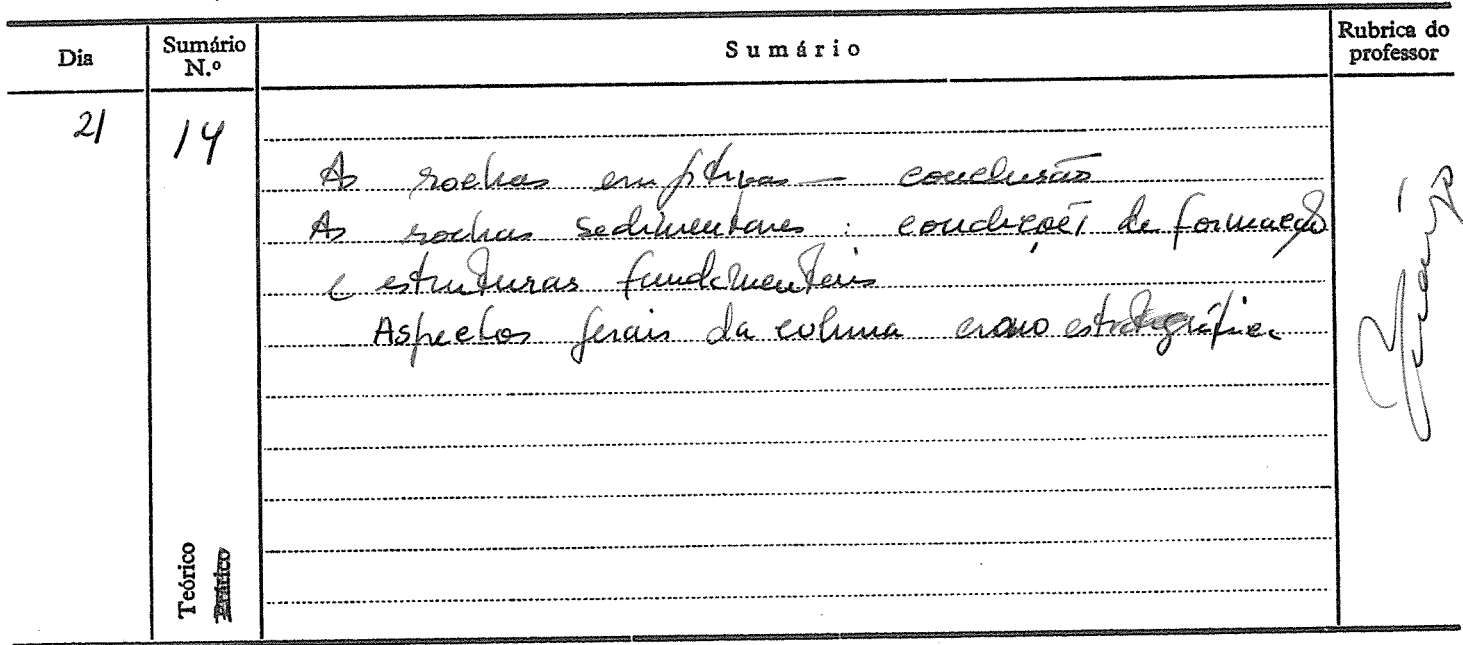 Dia
Sumário N.º
Sumário
Rubrica do professor
21
14
As rochas eruptivas — conclusão
As rochas sedimentares : condições de formação
e estruturas fundamentais
Aspectos gerais da coluna cronoestratigráfica
Teórico
Prático